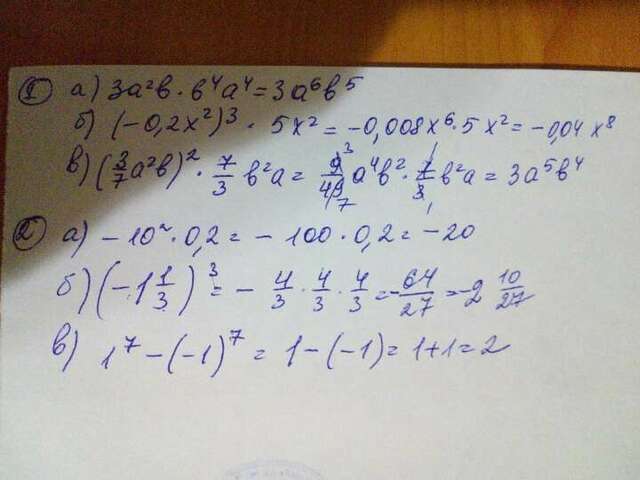 1 а) 3a²b · b⁴a⁴ = 3a⁶b⁵
б) (-0,2x²)³ · 5x² = -0,008x⁶ · 5x² = -0,04x⁸
в) (3/7 a²b)² · 7/3 b²a = 9 3/49 7 a⁴b² · 7 1/3 1 b²a = 3a⁵b⁴
2 а) -10² · 0,2 = -100 · 0,2 = -20
б) (-1 1/3)³ = -4/3 · 4/3 · 4/3 = -64/27 = -2 10/27
в) 1⁷ - (-1)⁷ = 1 - (-1) = 1 + 1 = 2